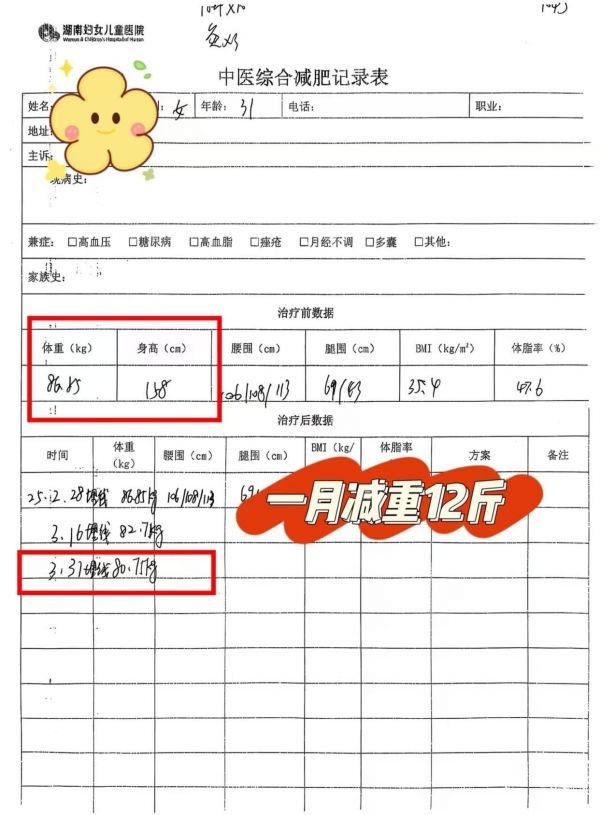 湖南妇女儿童医院
Women & Children's Hospital of Hunan
中医综合减肥记录表
姓名 女 年龄: 31 电话: 职业:
地址
主诉
现病史:
兼症: □高血压 □糖尿病 □高血脂 □痤疮 □月经不调 □多囊 □其他:
家族史:
治疗前数据
体重 (kg) 身高 (cm) 腰围 (cm) 腿围 (cm) BMI (kg/m²) 体脂率 (%)
86.85 158 106/108/113 69/43 35.4 47.6
治疗后数据
时间 体重 (kg) 腰围 (cm) 腿围 (cm) BMI (kg/ 体脂率 方案 备注
25.2.28埋线 86.85kg 106/108/113 69
一月减重12斤
3.16埋线 82.7kg
3.31埋线 80.75kg